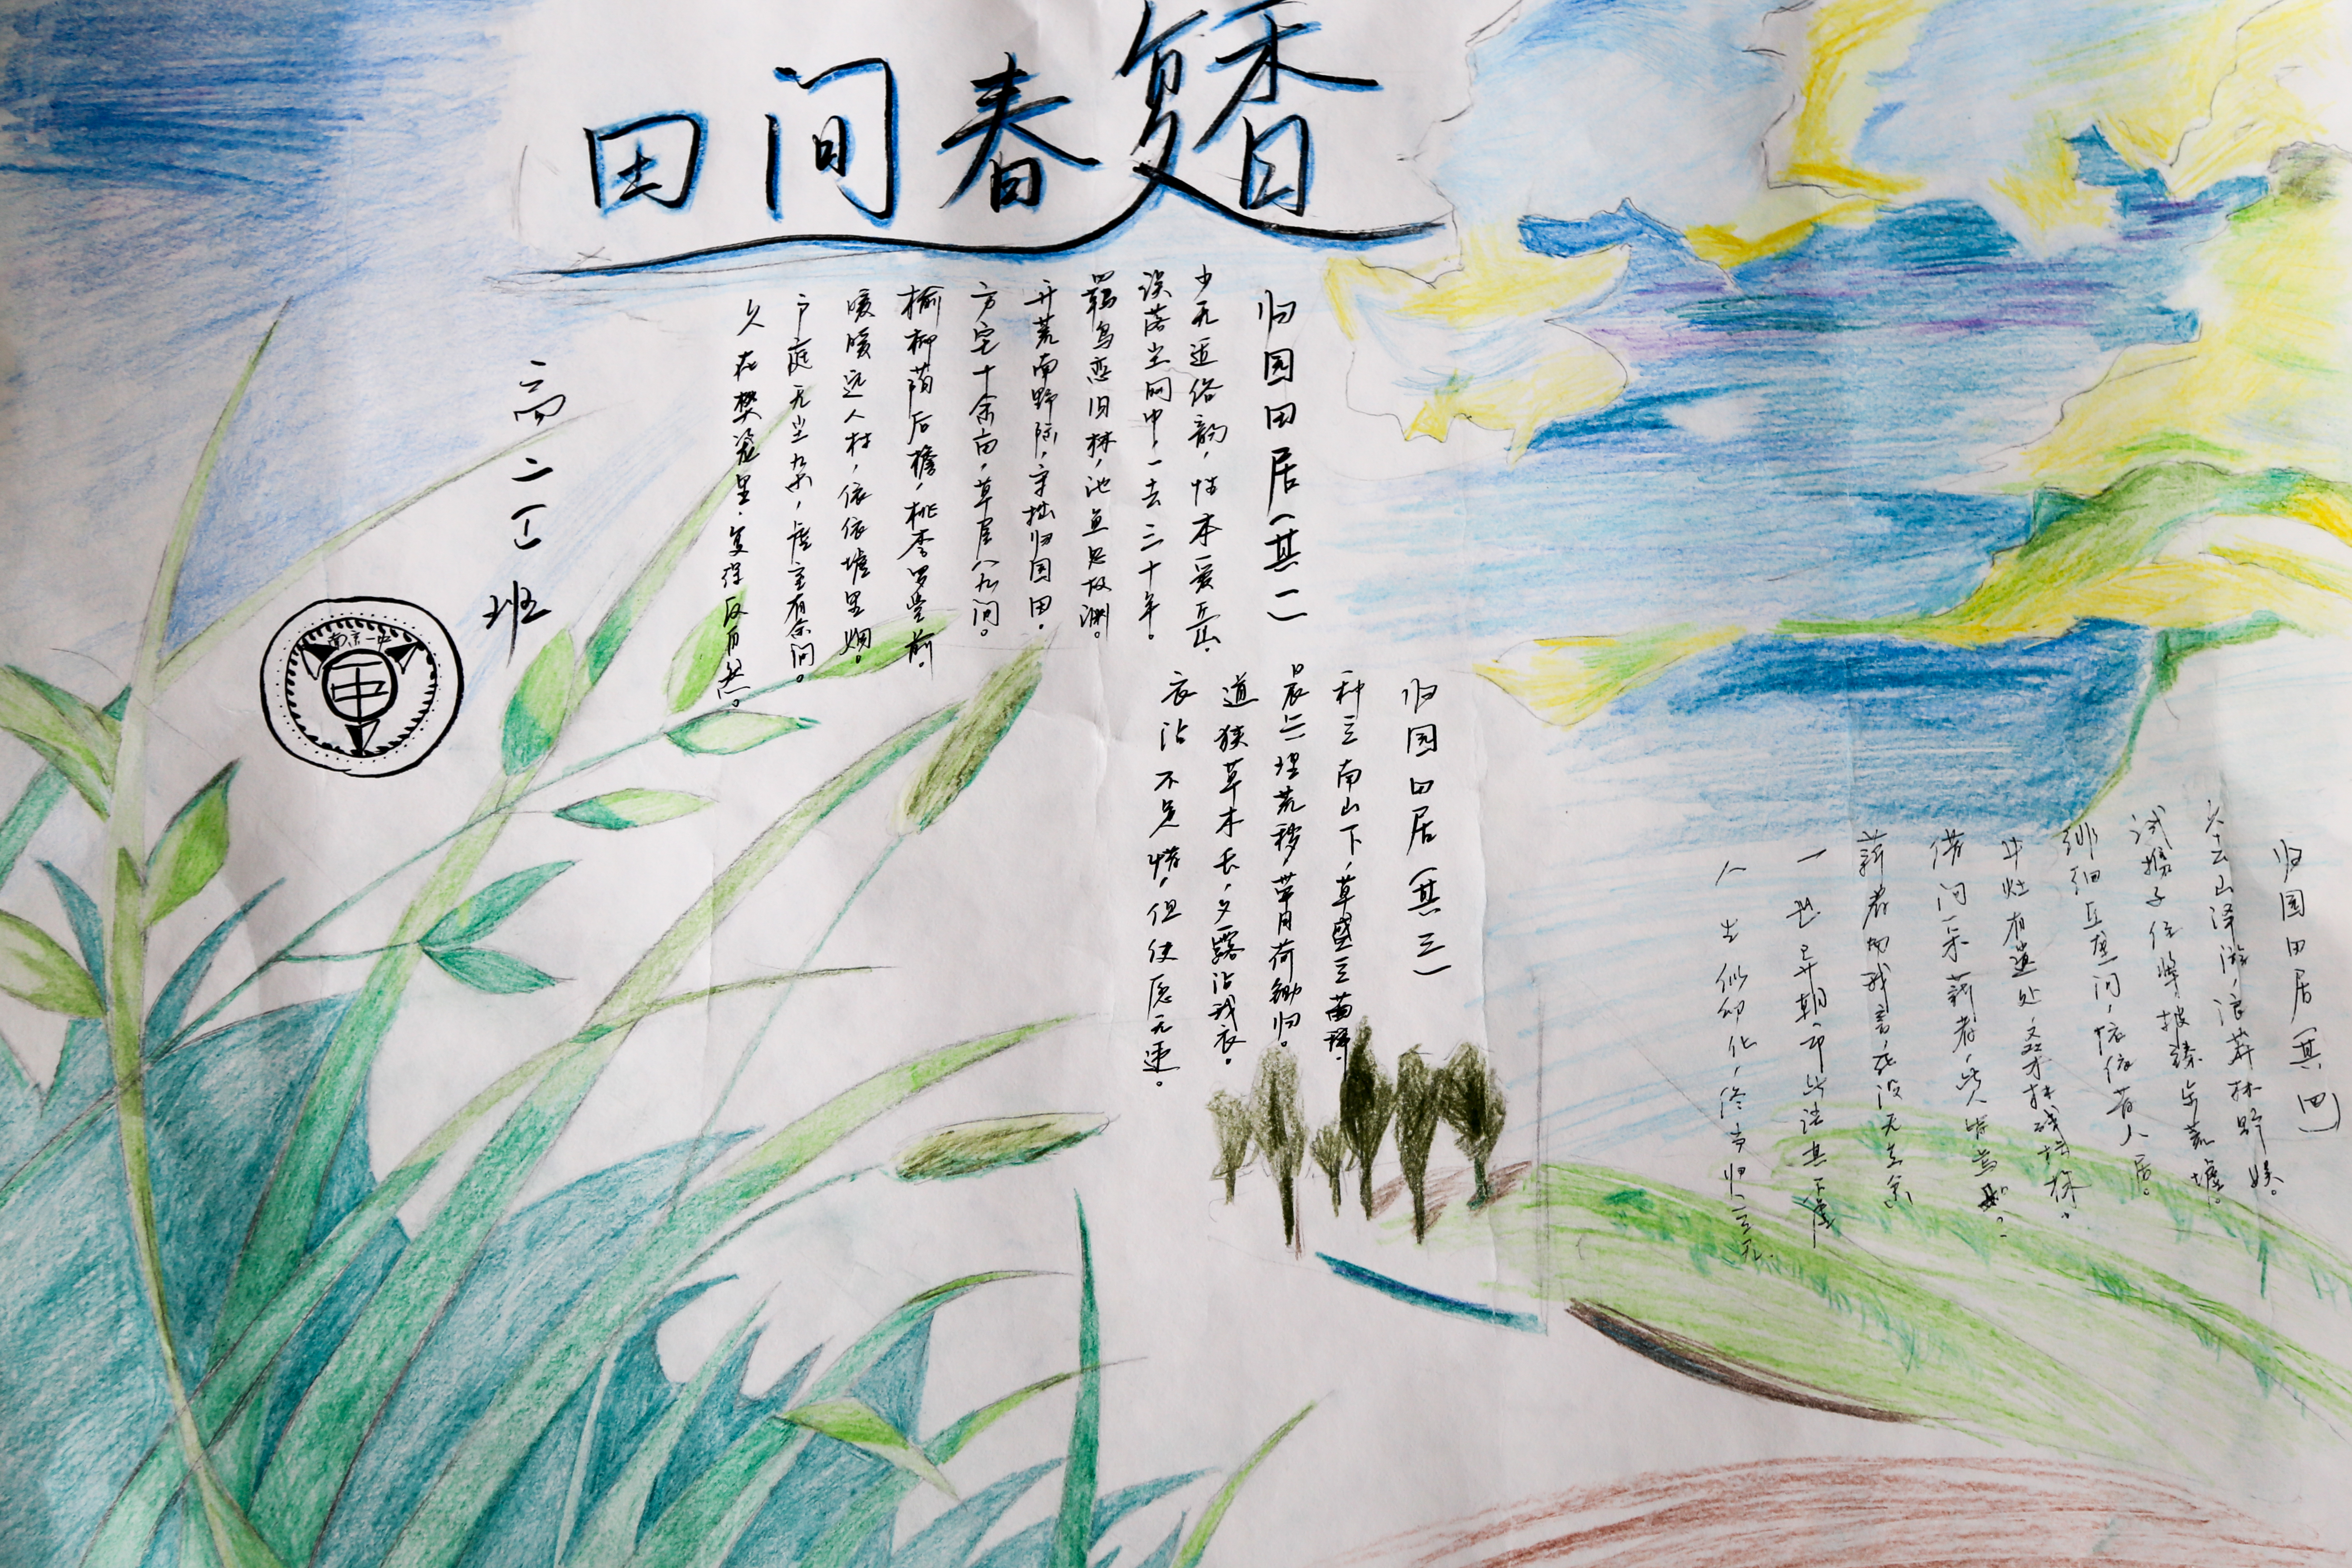 田间春馥
归园田居(其一)
少无适俗韵,性本爱丘山。
误落尘网中,一去三十年。
羁鸟恋旧林,池鱼思故渊。
开荒南野际,守拙归园田。
方宅十余亩,草屋八九间。
榆柳荫后檐,桃李罗堂前。
暧暧远人村,依依墟里烟。
户庭无尘杂,虚室有余闲。
久在樊笼里,复得反自然。
高二(1)班
南京一中
中
归园田居(其三)
种豆南山下,草盛豆苗稀。
晨兴理荒秽,带月荷锄归。
道狭草木长,夕露沾我衣。
衣沾不足惜,但使愿无违。
归园田居(其四)
久去山泽游,浪莽林野娱。
试携子侄辈,披榛步荒墟。
徘徊丘垄间,依依昔人居。
井灶有遗处,桑竹残朽株。
借问采薪者,此人皆焉如?
薪者向我言,死没无复余
一世异朝市,此语真不虚
人生似幻化,终当归空无.